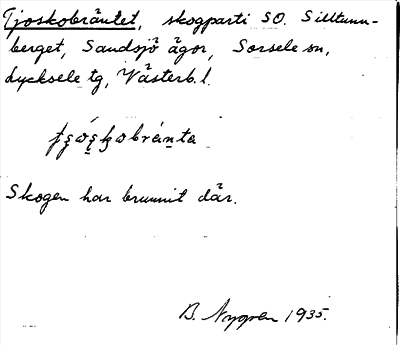 Tjoskobräntet, skogparti SO. Silltunn-
berget, Sandsjö ägor, Sorsele sn,
Lycksele tg, Västerb. l.
Skogen har brunnit där.
B. Nygren 1935.